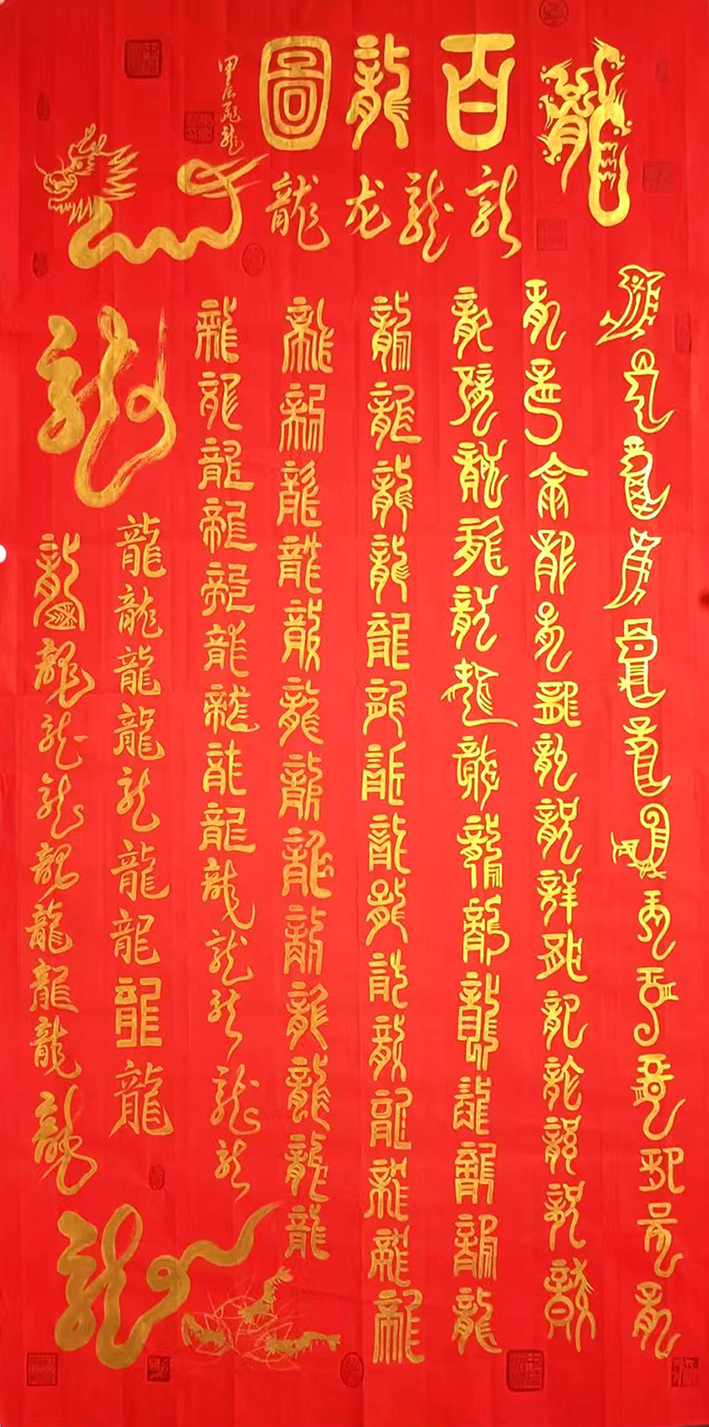 龍
百龍圖
龍龍龙龍
甲辰
龍龍龍龍龍龍龍龍龍龍龍龍龍
龍龍龍龍龍龍龍龍龍龍龍龍龍龍龍
龍龍龍龍龍龍龍龍龍龍龍龍龍龍
龍龍龍龍龍龍龍龍龍龍龍龍龍龍龍
龍龍龍龍龍龍龍龍龍龍龍龍龍
龍龍龍龍龍龍龍龍龍龍龍龍龍龍
龍
龍龍龍龍龍龍龍龍龍
龍龍龍龍龍龍龍龍龍
龍